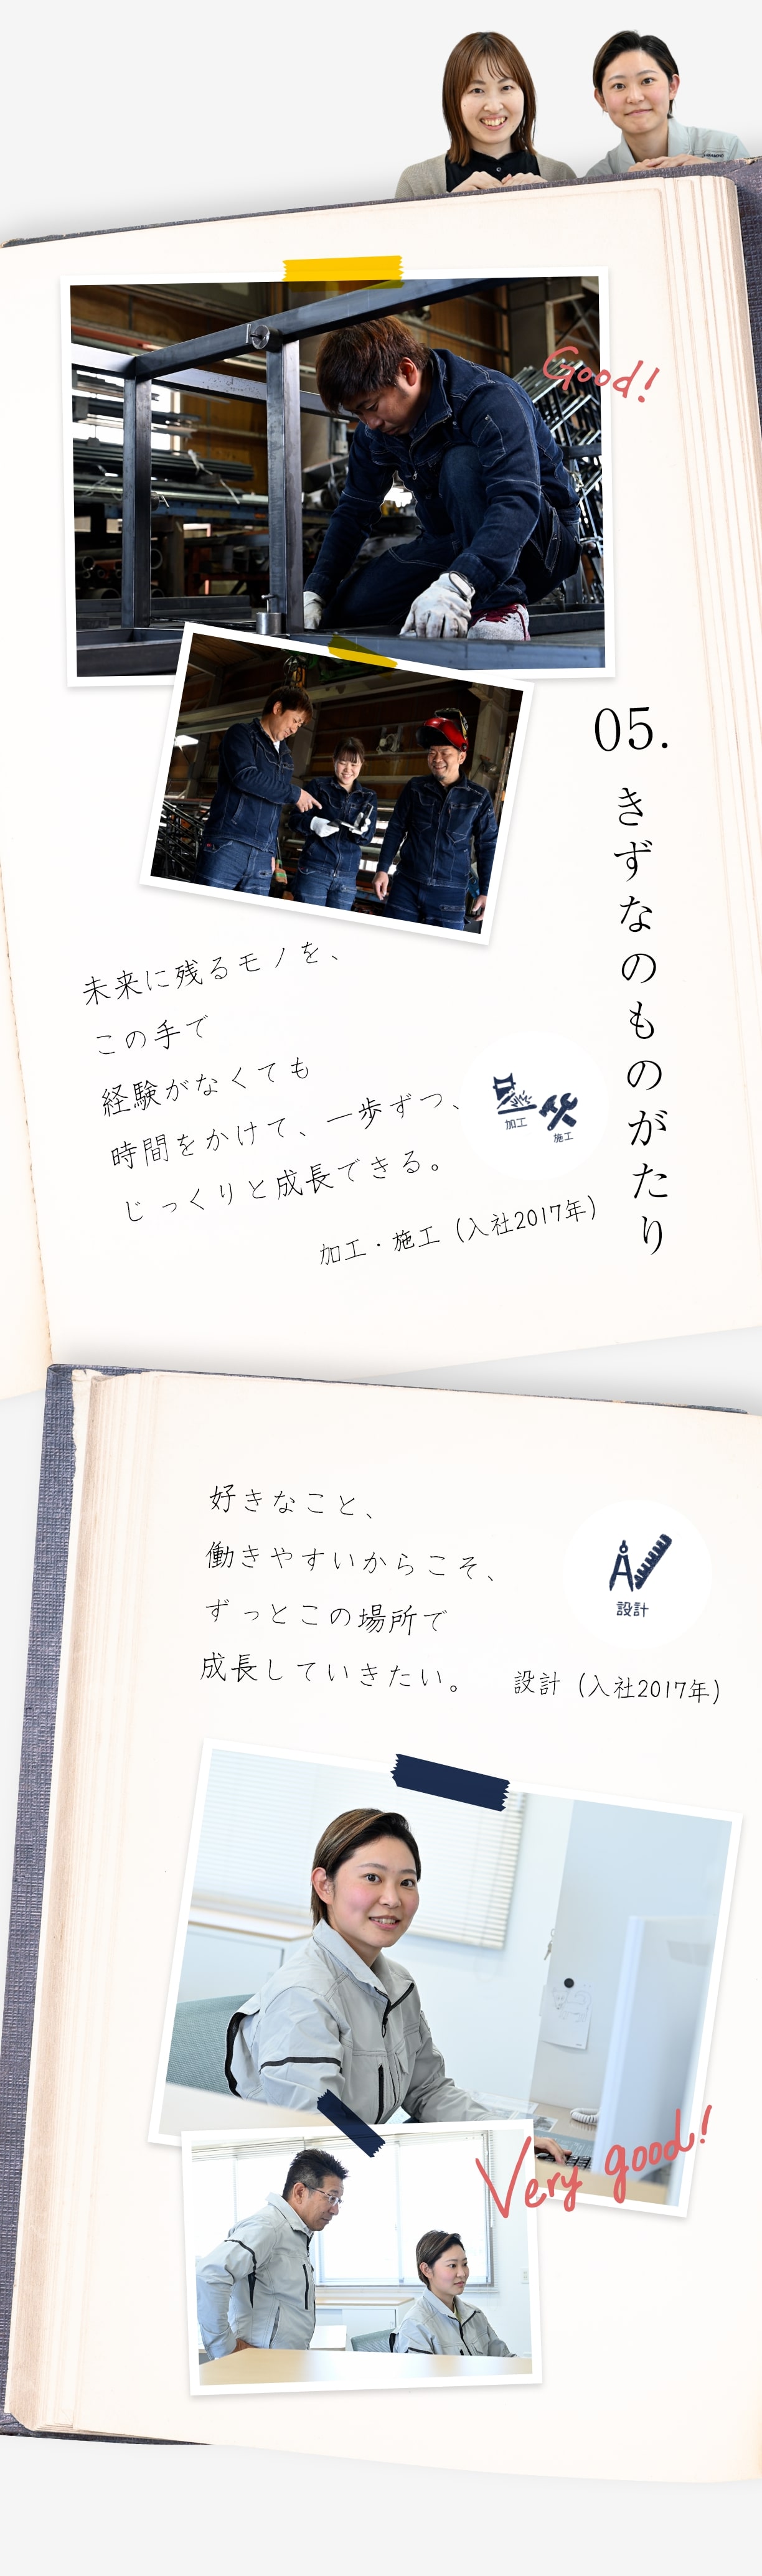 Good!
05.
きずなのものがたり
未来に残るモノを、
この手で
経験がなくても
時間をかけて、一歩ずつ、
じっくりと成長できる。
加工
施工
加工・施工(入社2017年)
好きなこと、
働きやすいからこそ、
ずっとこの場所で
成長していきたい。
設計
設計(入社2017年)
Very good!